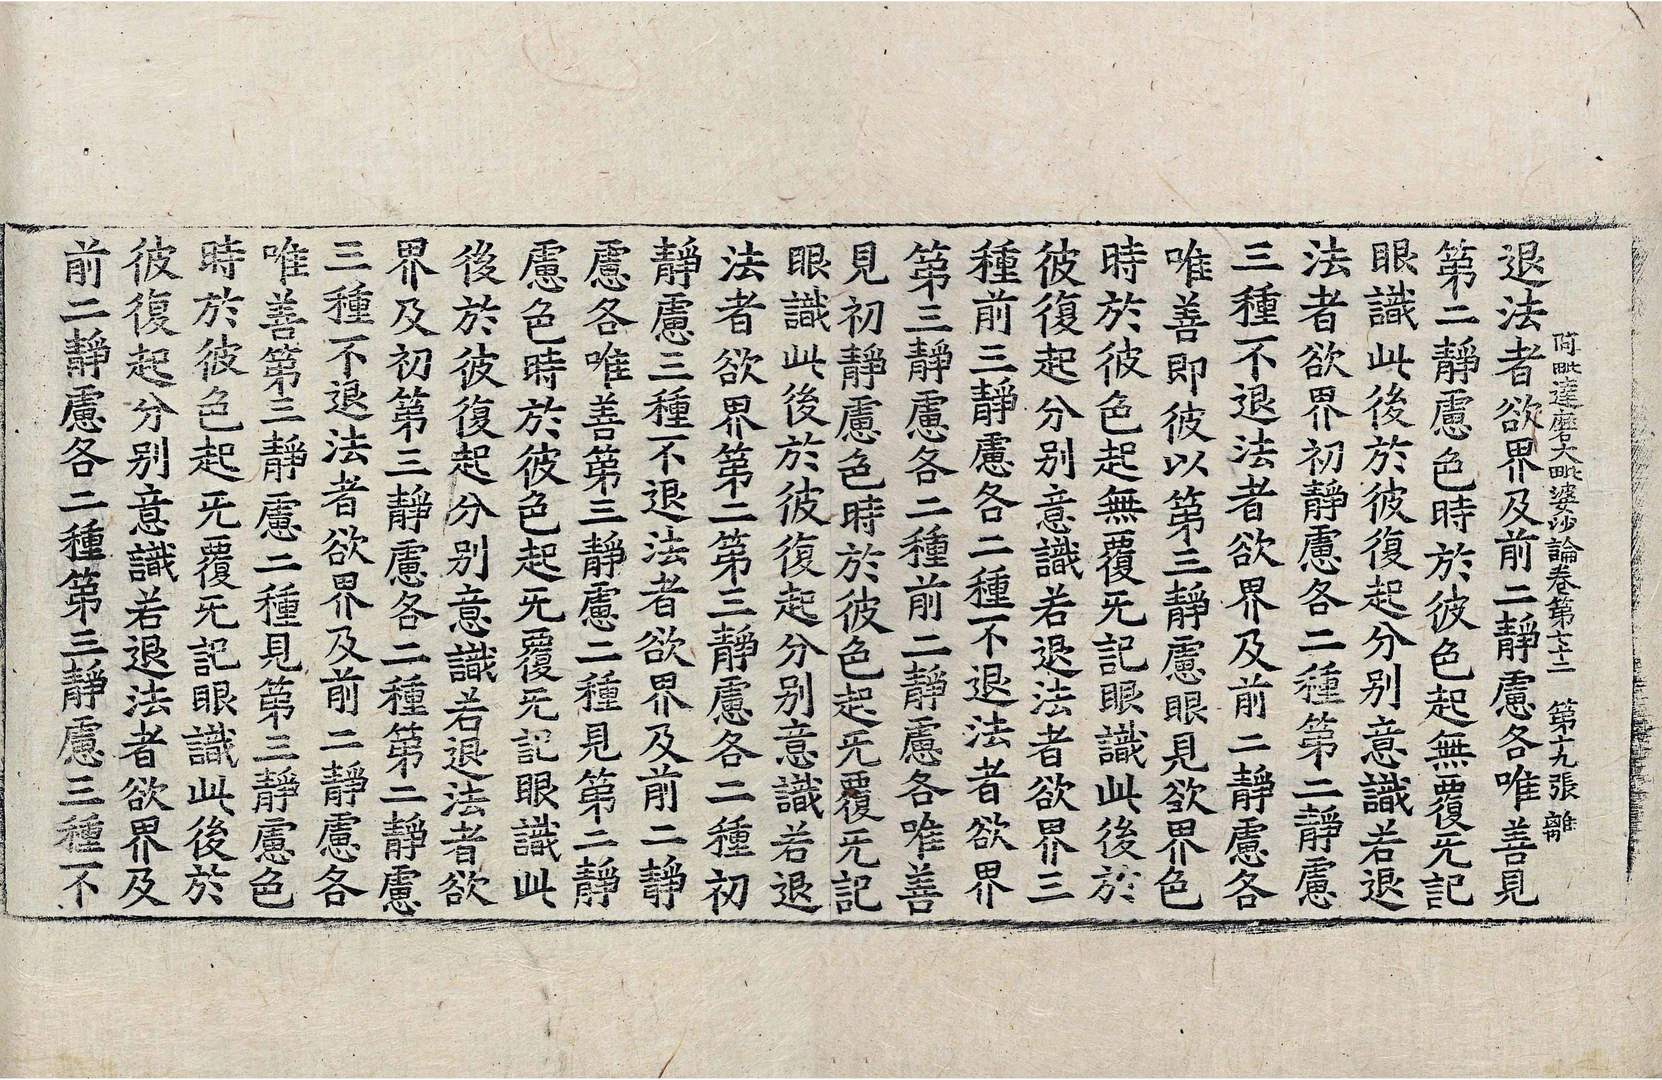 阿毗達磨大毗婆沙論卷第七十二 第十九張 離
退法者欲界及前二靜慮各唯善見
第二靜慮色時於彼色起無覆无記
眼識此後於彼復起分别意識若退
法者欲界初靜慮各二種第二靜慮
三種不退法者欲界及前二靜慮各
唯善即彼以第三靜慮眼見欲界色
時於彼色起無覆无記眼識此後於
彼復起分别意識若退法者欲界三
種前三靜慮各二種不退法者欲界
第三靜慮各二種前二靜慮各唯善
見初靜慮色時於彼色起无覆无記
眼識此後於彼復起分别意識若退
法者欲界第二第三靜慮各二種初
靜慮三種不退法者欲界及前二靜
慮各唯善第三靜慮二種見第二靜
慮色時於彼色起无覆无記眼識此
後於彼復起分别意識若退法者欲
界及初第三靜慮各二種第二靜慮
三種不退法者欲界及前二靜慮各
唯善第三靜慮二種見第三靜慮色
時於彼色起无覆无記眼識此後於
彼復起分别意識若退法者欲界及
前二靜慮各二種第三靜慮三種不